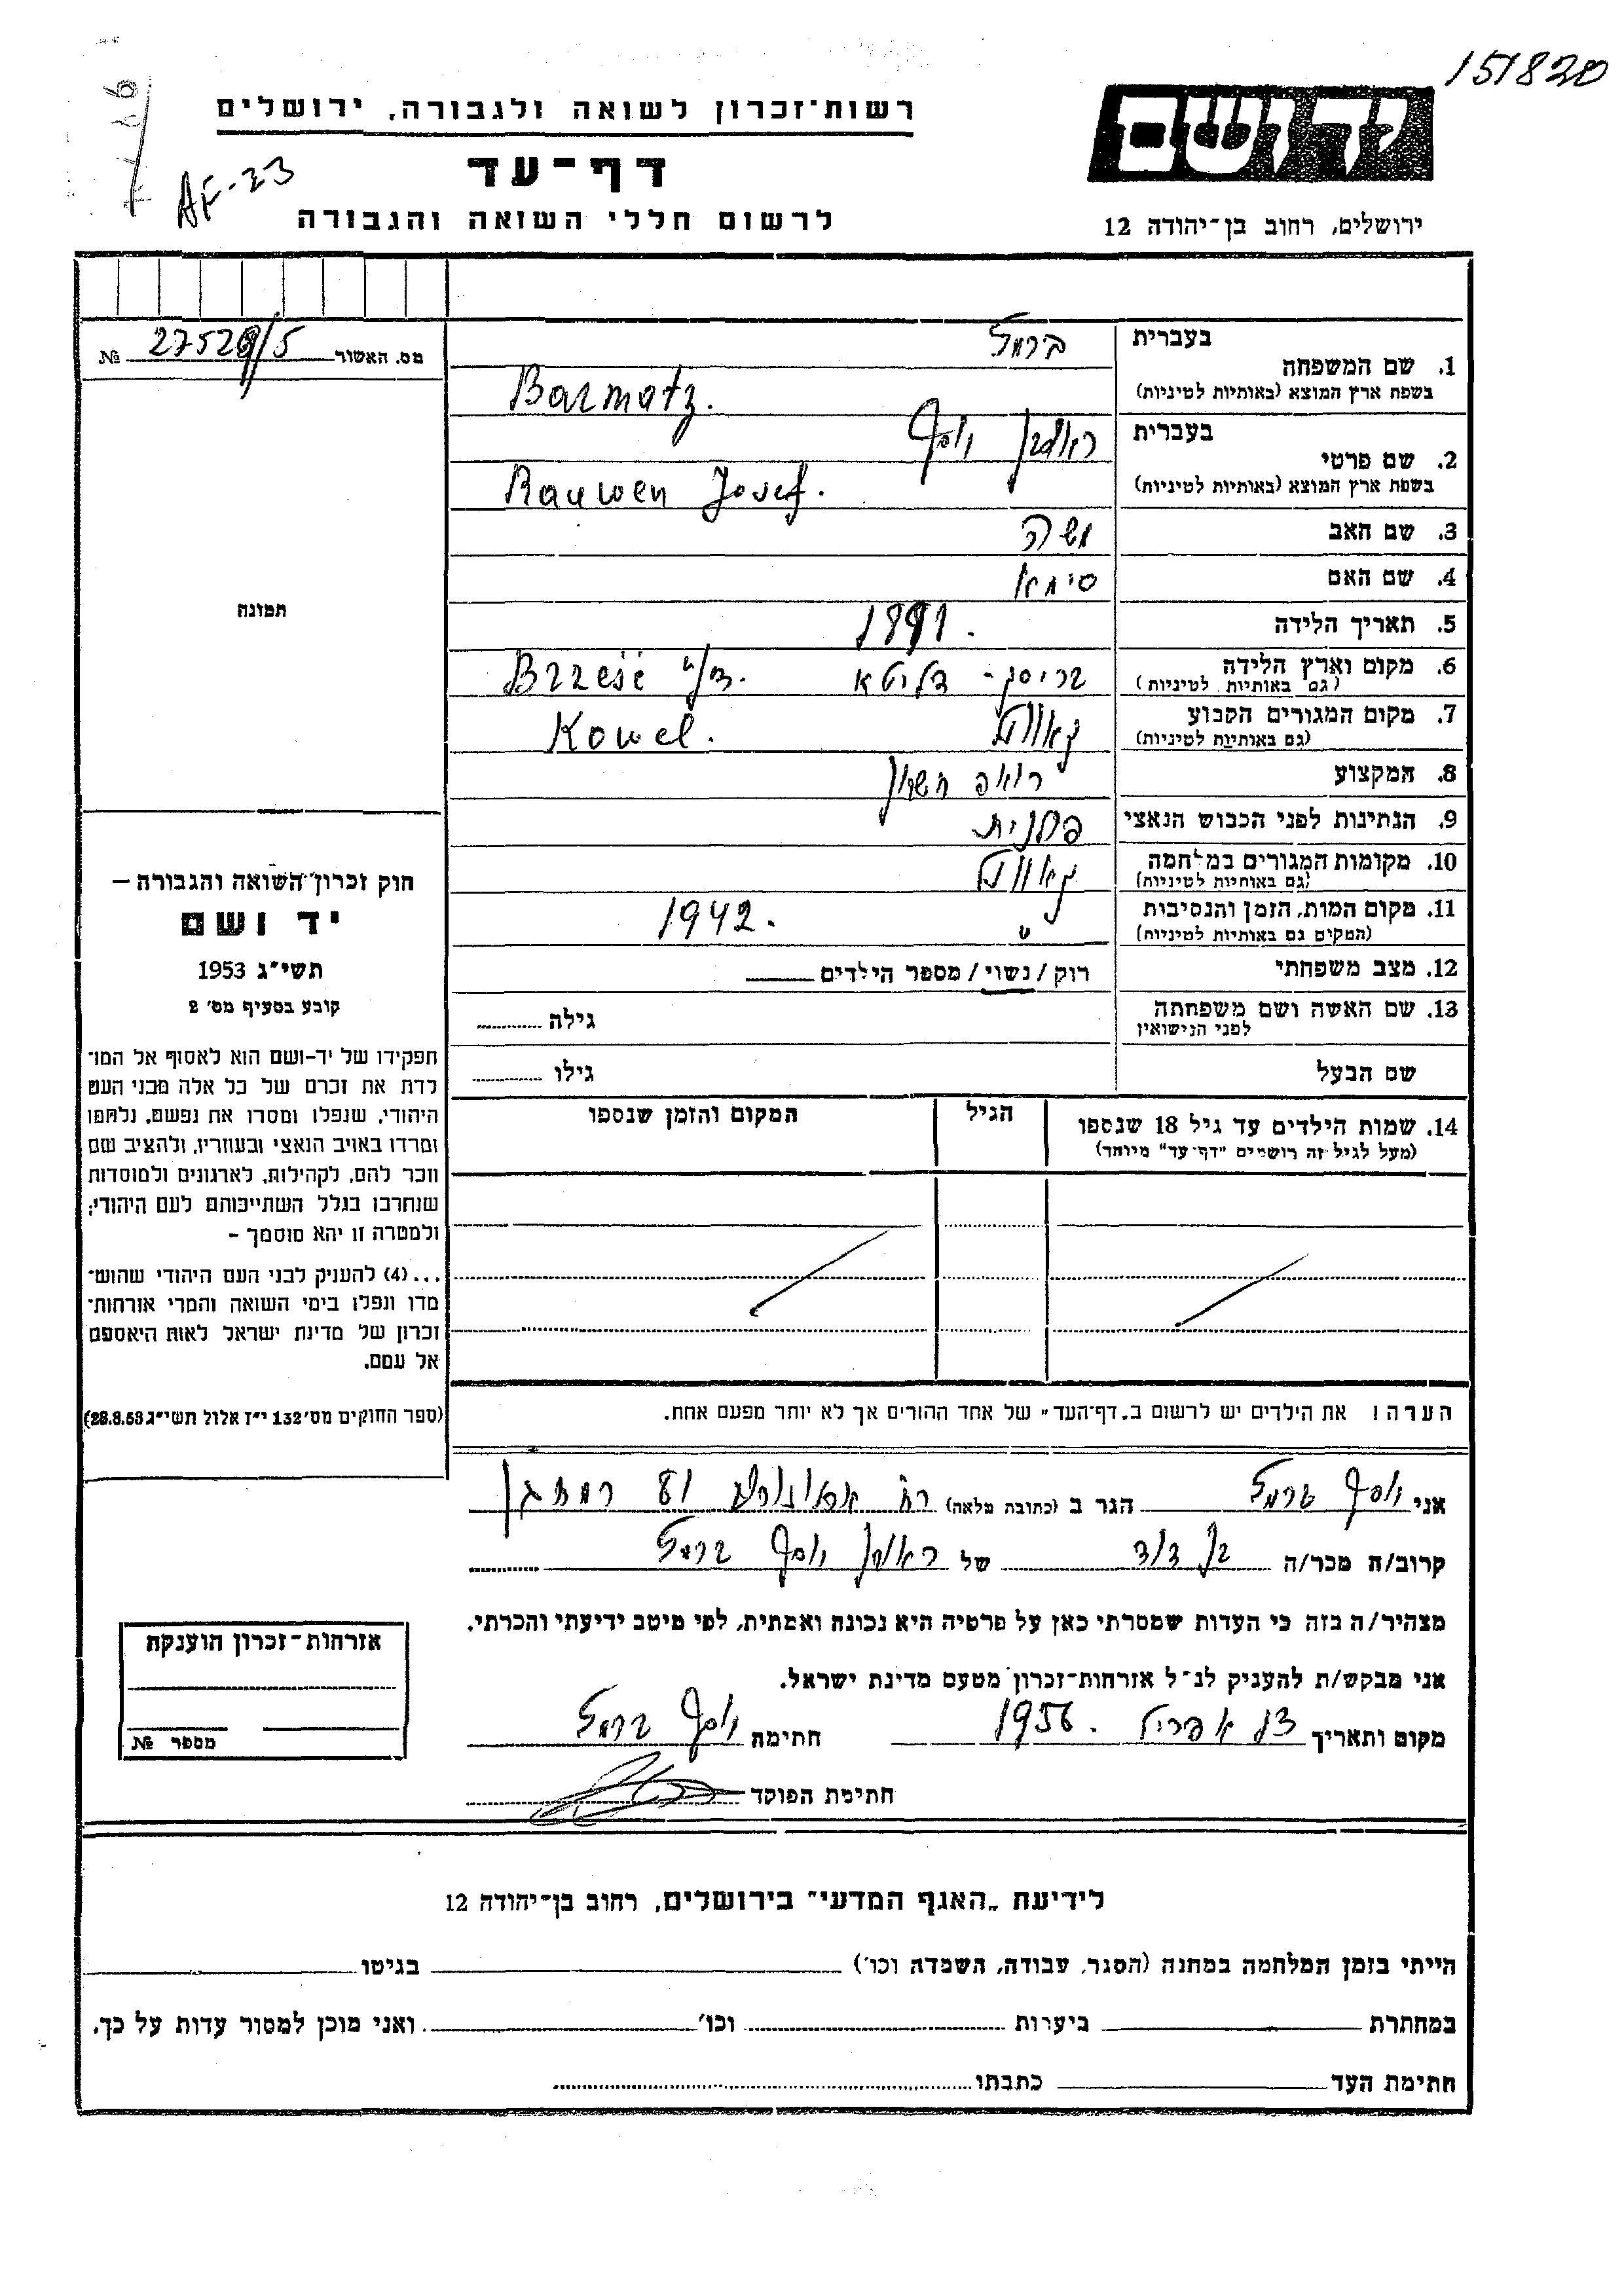 151820
ידושם
ירושלים, רחוב בן־יהודה 12
רשות־זכרון לשואה ולגבורה, ירושלים
דף־עד
לרשום חללי השואה והגבורה
AF-23
מס. האשור 27529/5 №
תמונה
חוק זכרון השואה והגבורה –
יד ושם
תשי״ג 1953
קובע בסעיף מס׳ 2
תפקידו של יד-ושם הוא לאסוף אל המו־
לדת את זכרם של כל אלה מבני העם
היהודי, שנפלו ומסרו את נפשם, נלחמו
ומרדו באויב הנאצי ובעוזריו, ולהציב שם
וזכר להם, לקהילות, לארגונים ולמוסדות
שנחרבו בגלל השתייכותם לעם היהודי;
ולמטרה זו יהא מוסמך –
...(4) להעניק לבני העם היהודי שהוש־
מדו ונפלו בימי השואה והמרי אזרחות־
זכרון של מדינת ישראל לאות היאספם
אל עמם.
(ספר החוקים מס׳ 132 י״ז אלול תשי״ג 28.8.53)
בעברית ברמץ
1. שם המשפחה
בשפת ארץ המוצא (באותיות לטיניות) Barmatz.
בעברית ראובן יוסף
2. שם פרטי
בשפת ארץ המוצא (באותיות לטיניות) Rauwen Josef.
3. שם האב משה
4. שם האם סימא
5. תאריך הלידה 1891.
6. מקום וארץ הלידה בריסק - דליטא Brześć n/
(גם באותיות לטיניות)
7. מקום המגורים הקבוע קאוולע Kowel.
(גם באותיות לטיניות)
8. המקצוע רואה חשבון
9. הנתינות לפני הכבוש הנאצי פולנית
10. מקומות המגורים במלחמה קאוולע
(גם באותיות לטיניות)
11. מקום המות, הזמן והנסיבות " 1942.
(המקום גם באותיות לטיניות)
12. מצב משפחתי רוק / נשוי / מספר הילדים
13. שם האשה ושם משפחתה גילה
לפני הנישואין
שם הבעל גילו
14. שמות הילדים עד גיל 18 שנספו הגיל המקום והזמן שנספו
(מעל לגיל זה רושמים "דף־עד" מיוחד)
הערה! את הילדים יש לרשום ב„דף־העד״ של אחד ההורים אך לא יותר מפעם אחת.
אני יוסף ברמץ הגר ב (כתובת מלאה) רח׳ רמת גן
קרוב/ה מכר/ה בן דוד של ראובן יוסף ברמץ
מצהיר/ה בזה כי העדות שמסרתי כאן על פרטיה היא נכונה ואמתית, לפי מיטב ידיעתי והכרתי.
אני מבקש/ת להעניק לנ״ל אזרחות־זכרון מטעם מדינת ישראל.
מקום ותאריך אפריל 1956. חתימה יוסף ברמץ
חתימת הפוקד
אזרחות־זכרון הוענקה
מספר №
לידיעת „האגף המדעי״ בירושלים, רחוב בן־יהודה 12
הייתי בזמן המלחמה במחנה (הסגר, עבודה, השמדה וכו׳) בגיטו
במחתרת ביערות וכו׳ ואני מוכן למסור עדות על כך.
חתימת העד כתבתו